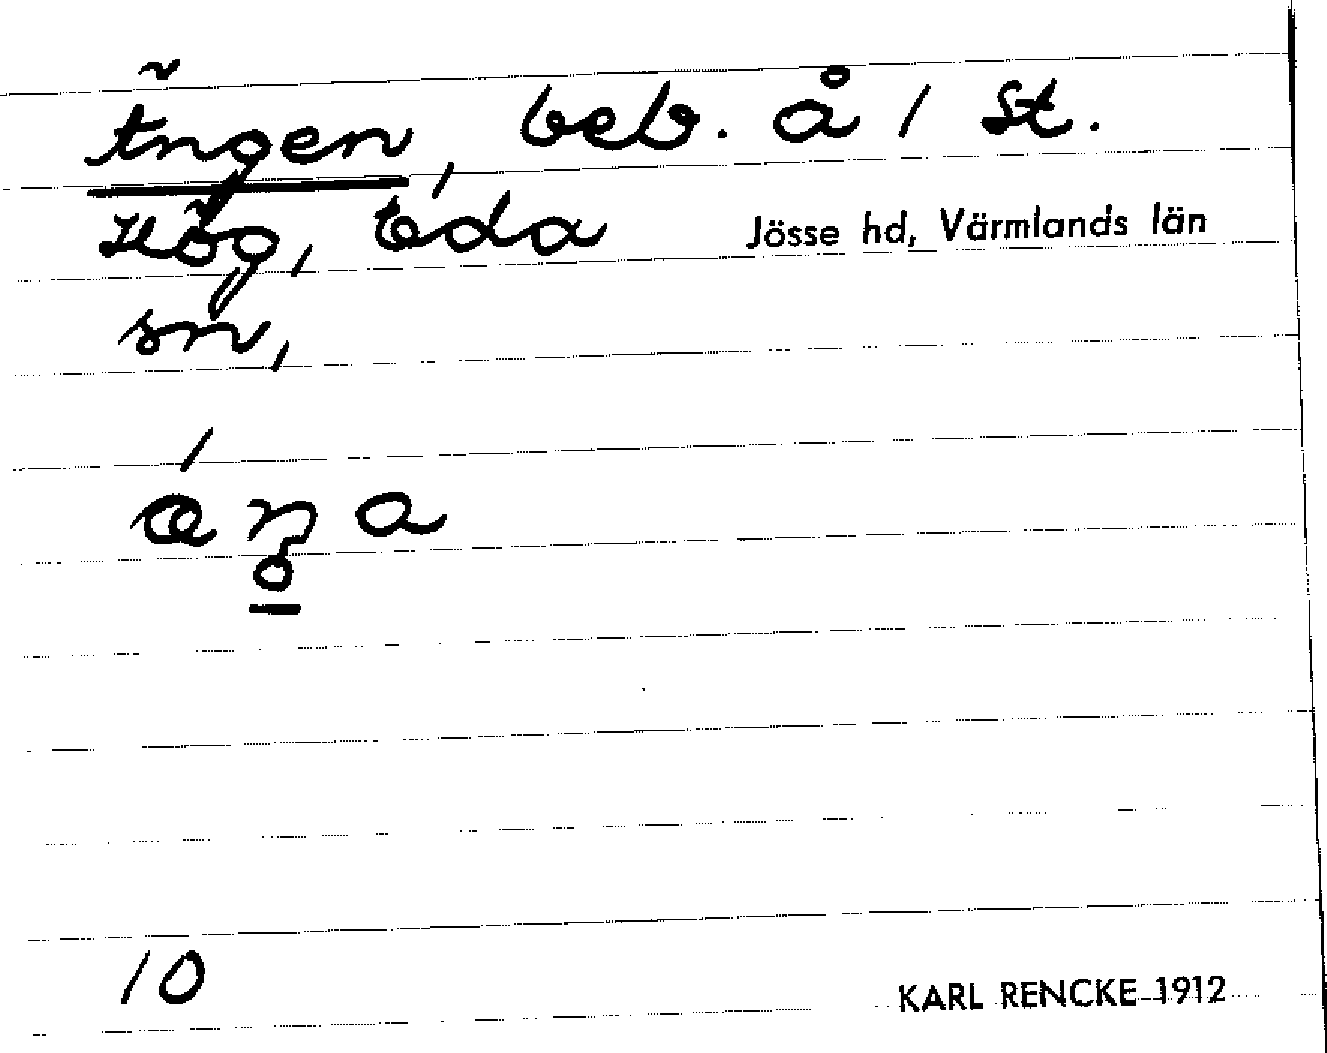 Ängen, beb. å / St.
Hög, Eda Jösse hd, Värmlands län
sn,
10
KARL RENCKE 1912